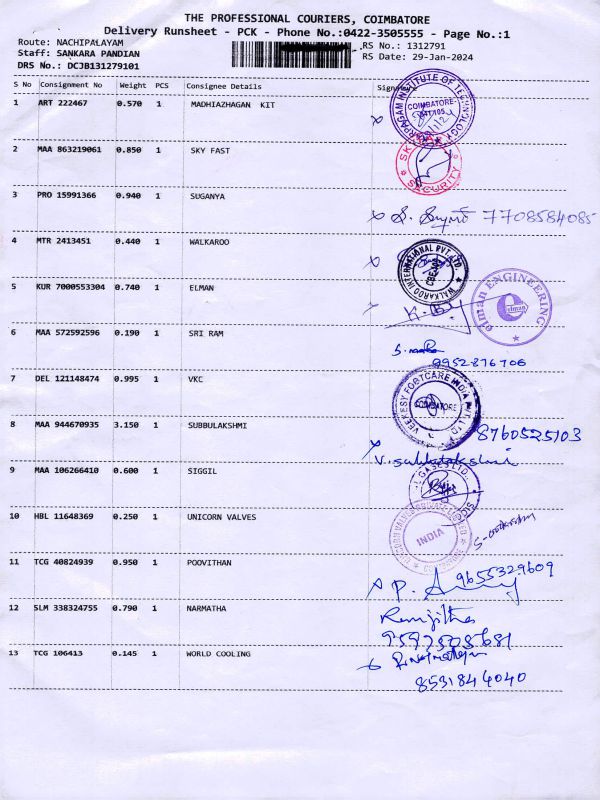 THE PROFESSIONAL COURIERS, COIMBATORE
Delivery Runsheet - PCK - Phone No.:0422-3505555 - Page No.:1
Route: NACHIPALAYAM
RS No.: 1312791
Staff: SANKARA PANDIAN
RS Date: 29-Jan-2024
DRS No.: DCJB131279101
S No Consignment No Weight PCS Consignee Details Signature
1 ART 222467 0.570 1 MADHIAZHAGAN KIT
COIMBATORE
2 MAA 863219061 0.850 1 SKY FAST
SECURITY
3 PRO 15991366 0.940 1 SUGANYA
7708584085
4 MTR 2413451 0.440 1 WALKAROO
WALKAROO INTERNATIONAL PVT LTD
5 KUR 7000553304 0.740 1 ELMAN
elman ENGINEERING
elman
6 MAA 572592596 0.190 1 SRI RAM
9952876706
7 DEL 121148474 0.995 1 VKC
VEEKESY FOOTCARE INDIA PVT LTD
COIMBATORE
8 MAA 944670935 3.150 1 SUBBULAKSHMI
8760525103
V. Subbulakshmi
9 MAA 106266410 0.600 1 SIGGIL
GASES LTD.
10 HBL 11648369 0.250 1 UNICORN VALVES
INDIA
11 TCG 40824939 0.950 1 POOVITHAN
9655329609
12 SLM 338324755 0.790 1 NARMATHA
13 TCG 106413 0.145 1 WORLD COOLING
8531844040